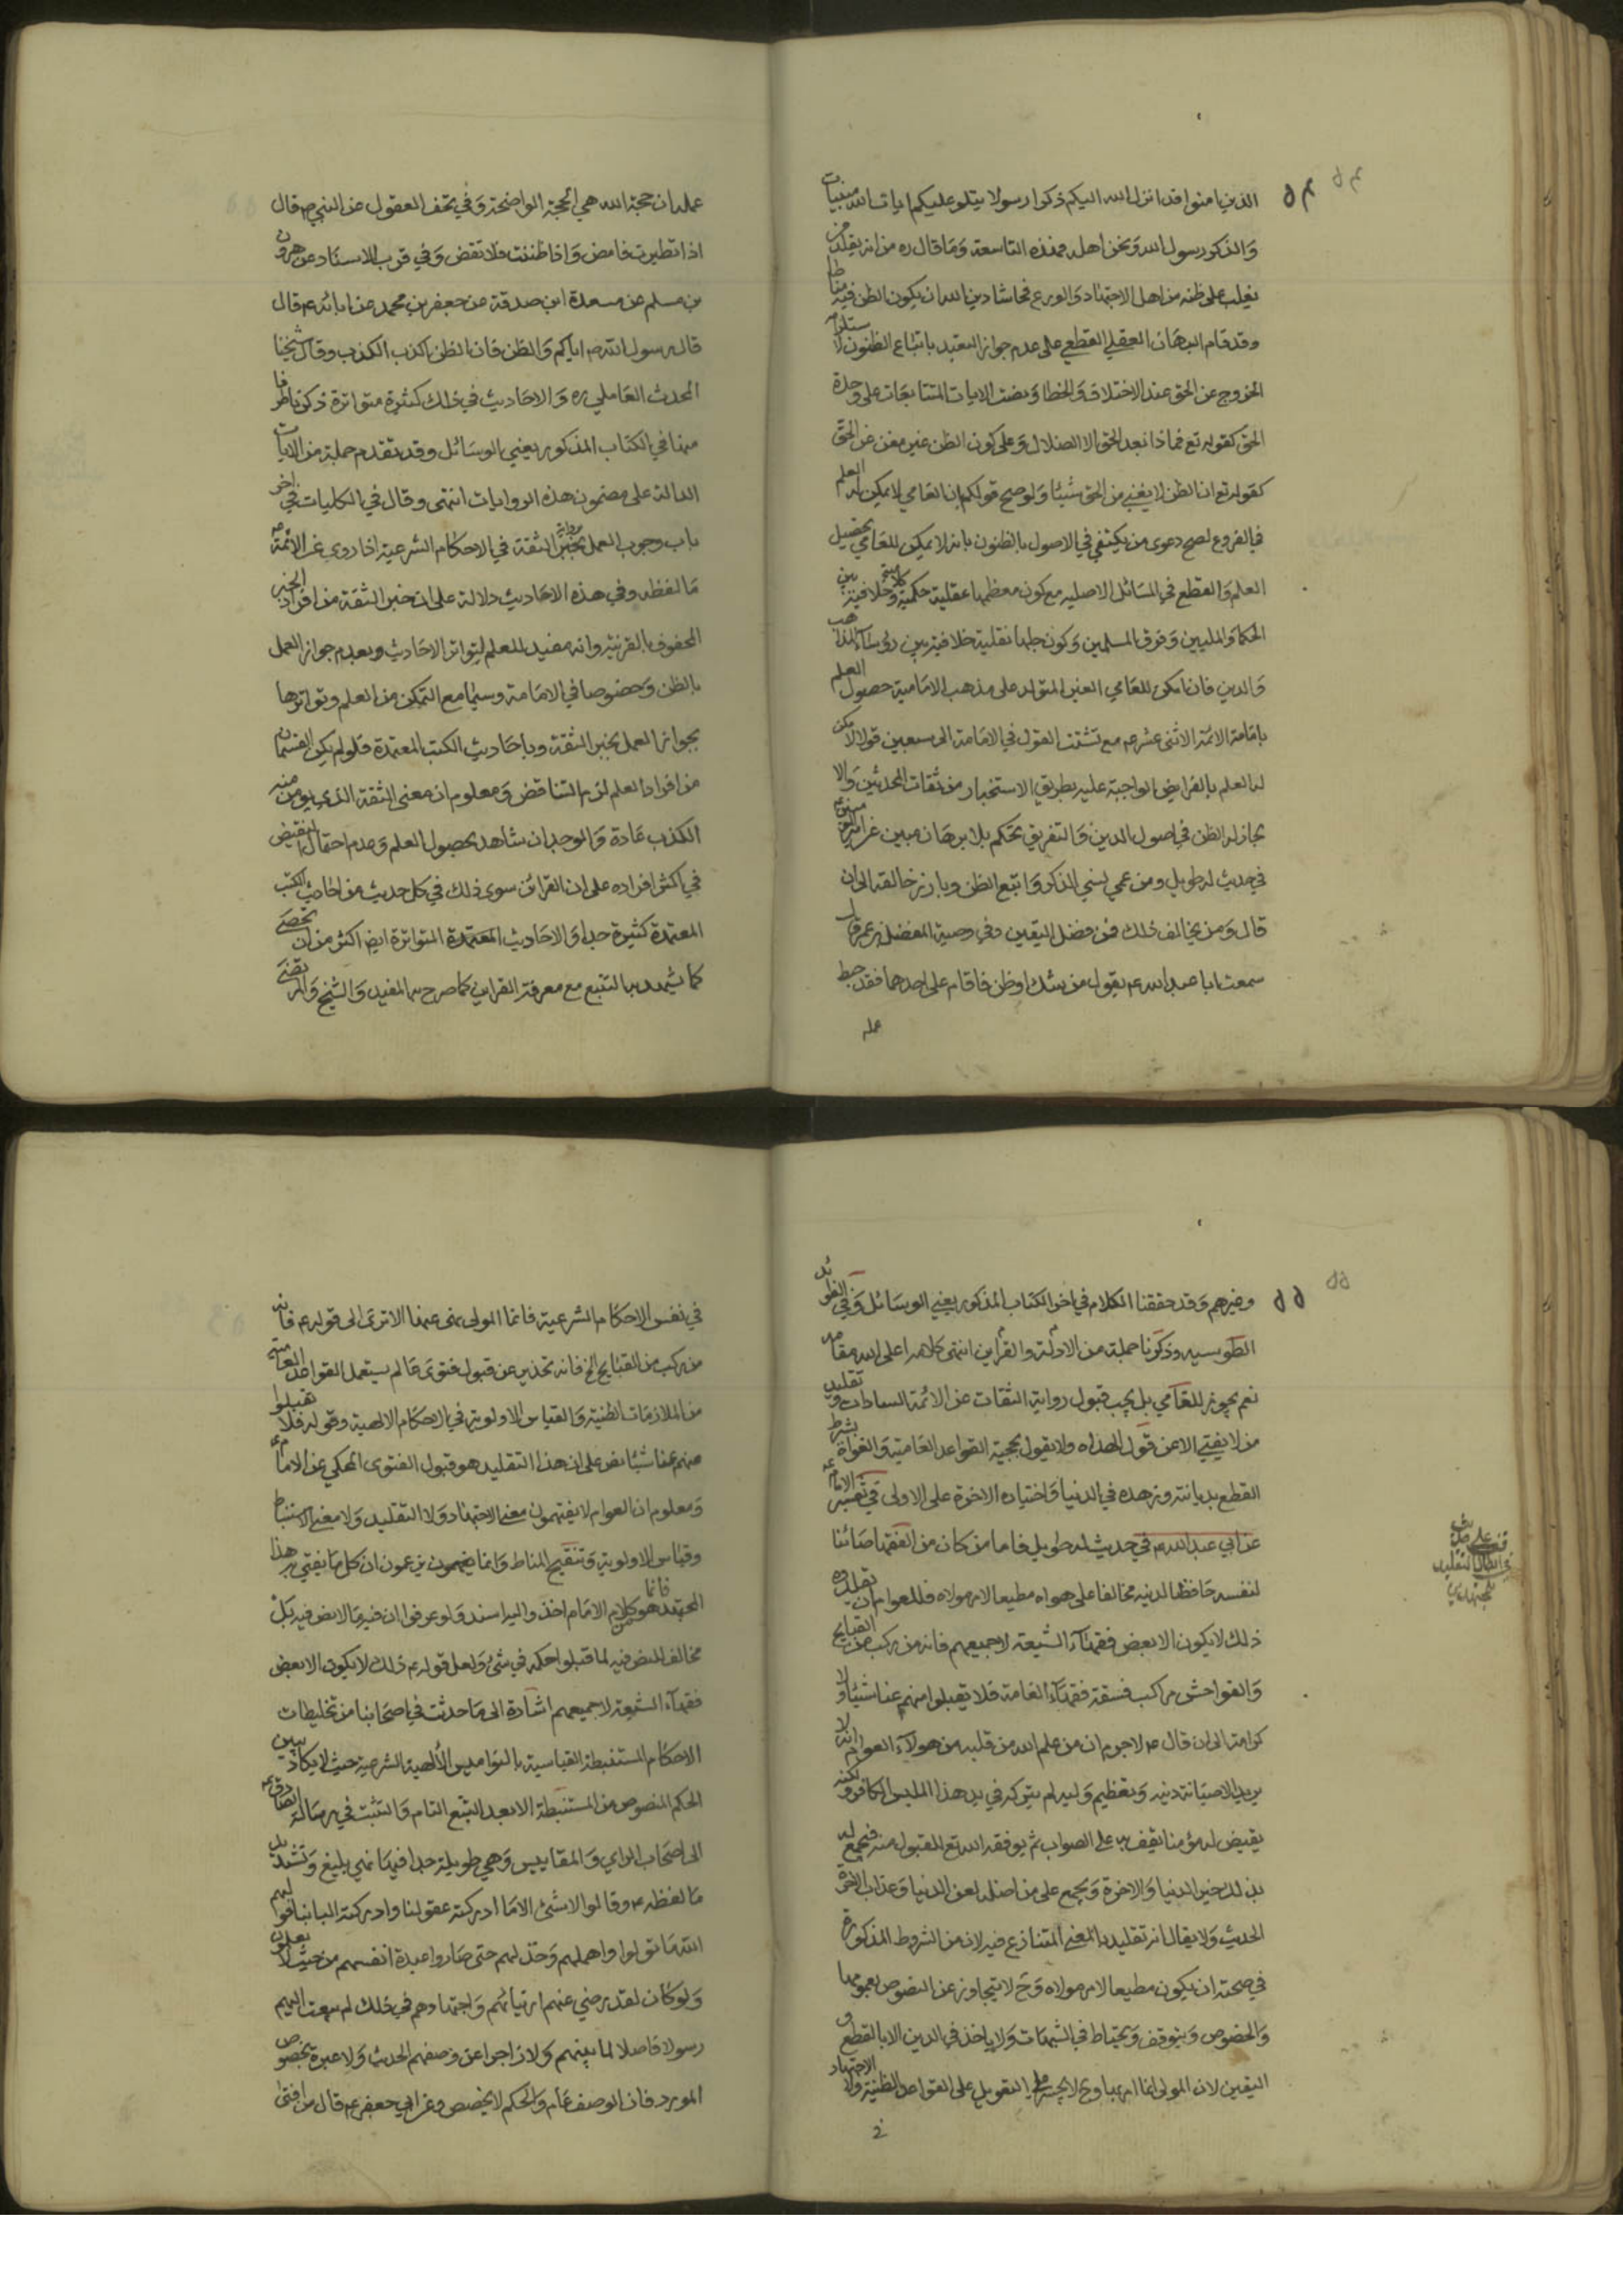 ٥٤
الذين امنوا قد انزل الله اليكم ذكرا رسولا يتلو عليكم ايات الله مبينات
والذكر رسول الله ونحن اهله فهذه التاسعة وما قال ره من انه يقلد من
يغلب على ظنه من اهل الاجتهاد والورع فحاشا دين الله ان يكون الظن فيه مناطا
وقد قام البرهان العقلي القطعي على عدم جواز التعبد باتباع الظنون لاستلزامه
الخروج عن الحق عند الاختلاف والخطا ونصت الايات المتتابعات على وحدة
الحق كقوله تع فماذا بعد الحق الا الضلال وعلى كون الظن غير مغن عن الحق
كقوله تع ان الظن لا يغني من الحق شيئا ولو صح قولكم ان العامي لا يمكن له العلم
في الفروع لصح دعوى من يكتفي في الاصول بالظنون بانه لا يمكن للعامي تحصيل
العلم والقطع في المسائل الاصليه مع كون معظمها عقلية حكمية وكلامية خلافية بين
الحكما والمليين وفرق المسلمين وكون جلها نقلية خلافية بين رؤساء المذاهب
والدين فان امكن للعامي الغير المتولد على مذهب الامامية حصول العلم
بامامة الائمة الاثنى عشر ع مع تشتت القول في الامامة الى سبعين قولا لامكن
له العلم بالفرايض الواجبة عليه بطريق الاستخبار من ثقات المحدثين والا
لجاز له الظن في اصول الدين والتفريق تحكم بلا برهان مبين عن امير المؤمنين ع
في حديث له طويل ومن عمي نسي الذكر واتبع الظن وبارز خالقه الى ان
قال ومن يخالف ذلك فمن فضل اليقين وفي وصية المفضل بن عمر قال
سمعت ابا عبد الله ع يقول من شك او ظن فاقام على احدهما فقد حبط
عمله
عمله ان حجة الله هي الحجة الواضحة وفي تحف العقول عن النبي ص قال
اذا تطيرت فامض واذا ظننت فلا تقض وفي قرب الاسناد عن هرون
بن مسلم عن مسعدة ابن صدقة عن جعفر بن محمد عن ابائه ع قال
قال رسول الله ص اياكم والظن فان الظن اكذب الكذب وقال شيخنا
المحدث العاملي ره والاحاديث في ذلك كثيرة متواترة ذكرنا طرفا
منها في الكتاب المذكور يعني الوسائل وقد تقدم جملة من الايات
الدالة على مضمون هذه الروايات انتهى وقال في الكليات في اخر
باب وجوب العمل بخبر الثقة في الاحكام الشرعية اذا روى عن الائمة ع
ما لفظه وفي هذه الاحاديث دلالة على ان خبر الثقة من افراد الخبر
المحفوف بالقرينة وانه مفيد للعلم لتواتر الاحاديث وبعدم جواز العمل
بالظن وخصوصا في الامامة وسيما مع التمكن من العلم وتواترها
بجواز العمل بخبر الثقة وباحاديث الكتب المعتمدة فلو لم يكن القسمان
من افراد العلم لزم التناقض ومعلوم ان معنى الثقة الذي يؤمن منه
الكذب عادة والوجدان شاهد بحصول العلم وعدم احتمال النقيض
في اكثر افراده على ان القرائن سوى ذلك في كل حديث من احاديث الكتب
المعتمدة كثيرة جدا والاحاديث المعتمدة المتواترة ايض اكثر من ان تحصى
كما يشهد به التتبع مع معرفة القراين كما صرح به المفيد والشيخ والمرتضى
٥٥
وغيرهم وقد حققنا الكلام في اخر الكتاب المذكور يعني الوسائل وفي الفوائد
الطوسيه وذكرنا جملة من الادلة والقراين انتهى كلامه اعلى الله مقامه
نعم يجوز للعامي بل يجب قبول رواية الثقات عن الائمة السادات وتقليد
من لا يفتي الا عن قول الهداه ولا يقول بحجية القواعد العامية والغواة بشرط
القطع بديانته وزهده في الدنيا واختياره الاخرة على الاولى في تفسير الامام ع
عن ابي عبد الله ع في حديث له طويل فاما من كان من الفقها صائنا
لنفسه حافظا لدينه مخالفا على هواه مطيعا لامر مولاه فللعوام ان يقلدوه
ذلك لا يكون الا بعض فقهاء الشيعة لا جميعهم فانه من ركب من القبايح
والفواحش مراكب فسقة فقهاء العامة فلا تقبلوا منهم عنا شيئا ولا
كرامة الى ان قال ع لا جرم ان من علم الله من قلبه من هولاء العوام انه لا
يريد الا صيانة دينه وتعظيم وليه لم يتركه في يد هذا الملبس الكافر ولكنه
يقيض له مؤمنا يقف به على الصواب ثم يوفقه الله تع للقبول منه فيجمع له
بذلك خير الدنيا والاخرة ويجمع على من اضله لعن الدنيا وعذاب الاخرة
الحديث ولا يقال انه تقليد بالمعنى المتنازع فيه لان من الشروط المذكورة
في صحته ان يكون مطيعا لامر مولاه وح لا يتجاوز عن النصوص بعمومها
والخصوص ويتوقف ويحتاط في الشبهات ولا ياخذ في الدين الا بالقطع و
اليقين لان المولى انما امر بها وح لا يجتري على التعويل على القواعد الظنية والاجتهاد
في
في نفس الاحكام الشرعية فانما المولى نهى عنها الا ترى الى قوله ع فانه
من ركب من القبايح الخ فانه تحذير عن قبول فتوى عالم يستعمل القواعد العامية
من الملازمات الظنية والقياس الاولوية في الاحكام الالهية وقوله فلا تقبلوا
منهم عنا شيئا نص على ان هذا التقليد هو قبول الفتوى المحكي عن الامام ع
ومعلوم ان العوام لا يفتهمون معنى الاجتهاد ولا التقليد ولا معنى الاستنباط
وقياس الاولوية وتنقيح المناط وانما يفهمون يزعمون ان كل ما يفتي به هذا
المجتهد فانما هو من كلام الامام اخذ واليه اسند ولو عرفوا ان فيه ما لا نص فيه بل
مخالف للنص فيه لما قبلوا حكمه في شئ ولعل قوله ع ذلك لا يكون الا بعض
فقهاء الشيعة لا جميعهم اشارة الى ما حدثت في اصحابنا من تخليطات
الاحكام المستنبطة القياسية بالنواميس الالهية الشرعية حيث لا يكاد يبين
الحكم المنصوص من المستنبطة الا بعد التتبع التام والتثبت في رسالة الصادق ع
الى اصحاب الراي والمقاييس وهي طويلة جدا فيها نهي بليغ وتشديد
ما لفظه ع وقالوا لا شئ الا ما ادركته عقولنا وادركته البابنا فولهم
الله ما تولوا واهملهم وخذلهم حتى صاروا عبدة انفسهم من حيث لا يعلمون
ولو كان لقد رضي عنهم ارتيائهم واجتهادهم في ذلك لم يبعث اليهم
رسولا فاصلا لما بينهم ولا زاجرا عن وصفهم الحديث ولا عبرة بخصوص
المورد فان الوصف عام والحكم لا يخصص وعن ابي جعفر ع قال من افتى